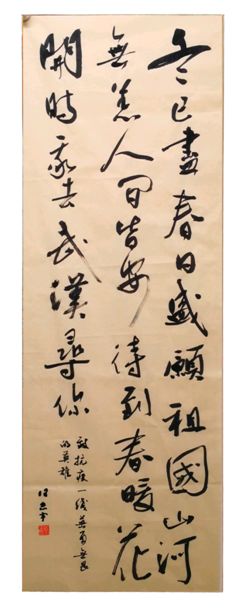 冬已盡春日盛願祖國山河
無恙人間皆安待到春暖花
開時我去武漢尋你
致抗疫一线英勇无畏
的英雄